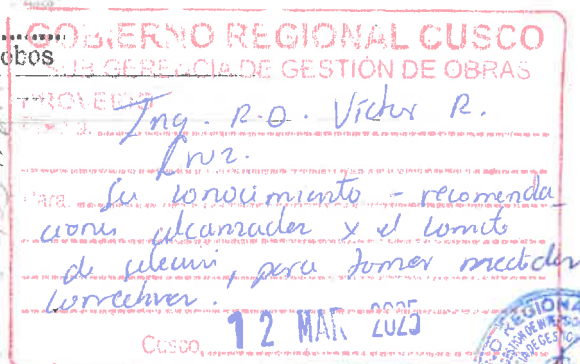 obos
GOBIERNO REGIONAL CUSCO
SUB GERENCIA DE GESTIÓN DE OBRAS
PROVEIDO
Ing. R.O. Víctor R.
Cruz.
Para: Su conocimiento - recomenda
ciones alcanzadas x el comite
de selecci, para tomar medidas
correctivas.
Cusco, 12 MAR. 2025